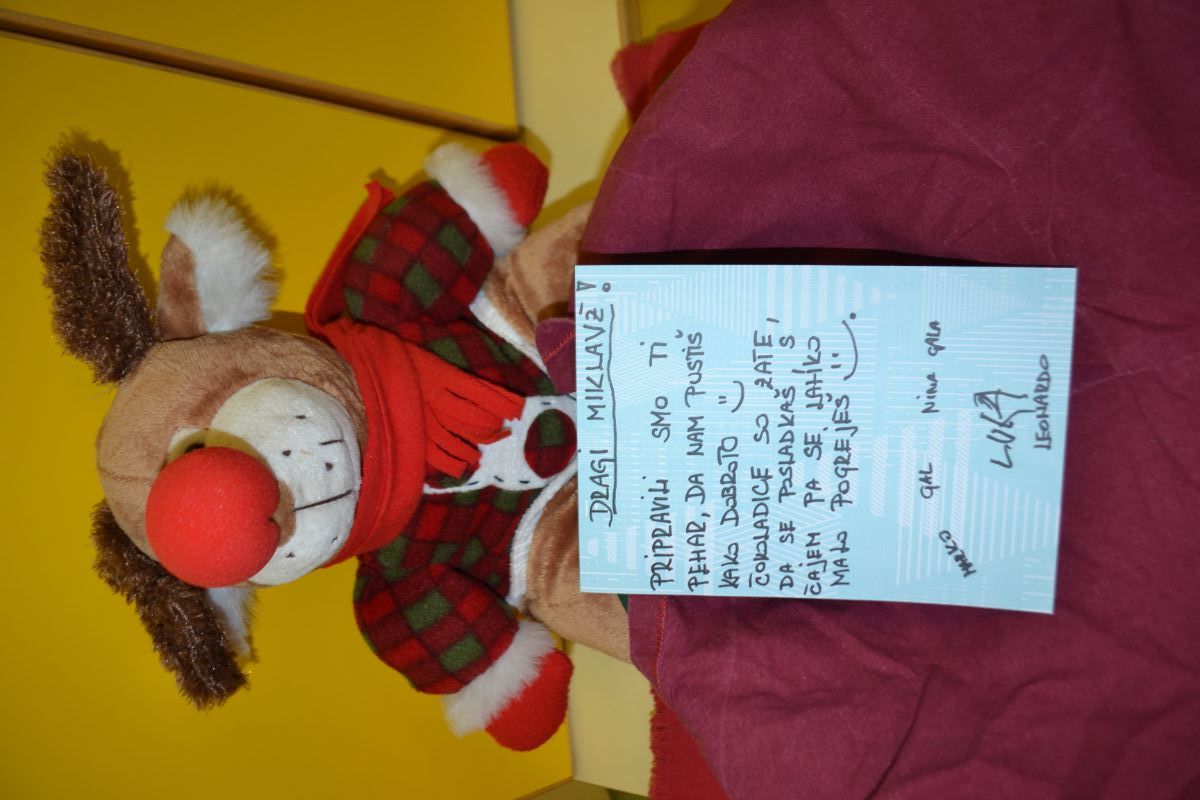 DRAGI MIKLAVŽ!
PRIPRAVILI SMO TI
PEHAR, DA NAM PUSTIŠ
KAKO DOBROTO
ČOKOLADICE SO ZATE,
DA SE POSLADKAŠ, S
ČAJEM PA SE LAHKO
MALO POGREJEŠ.
MARKO GAL NINA GALA
LUKA
LEONARDO